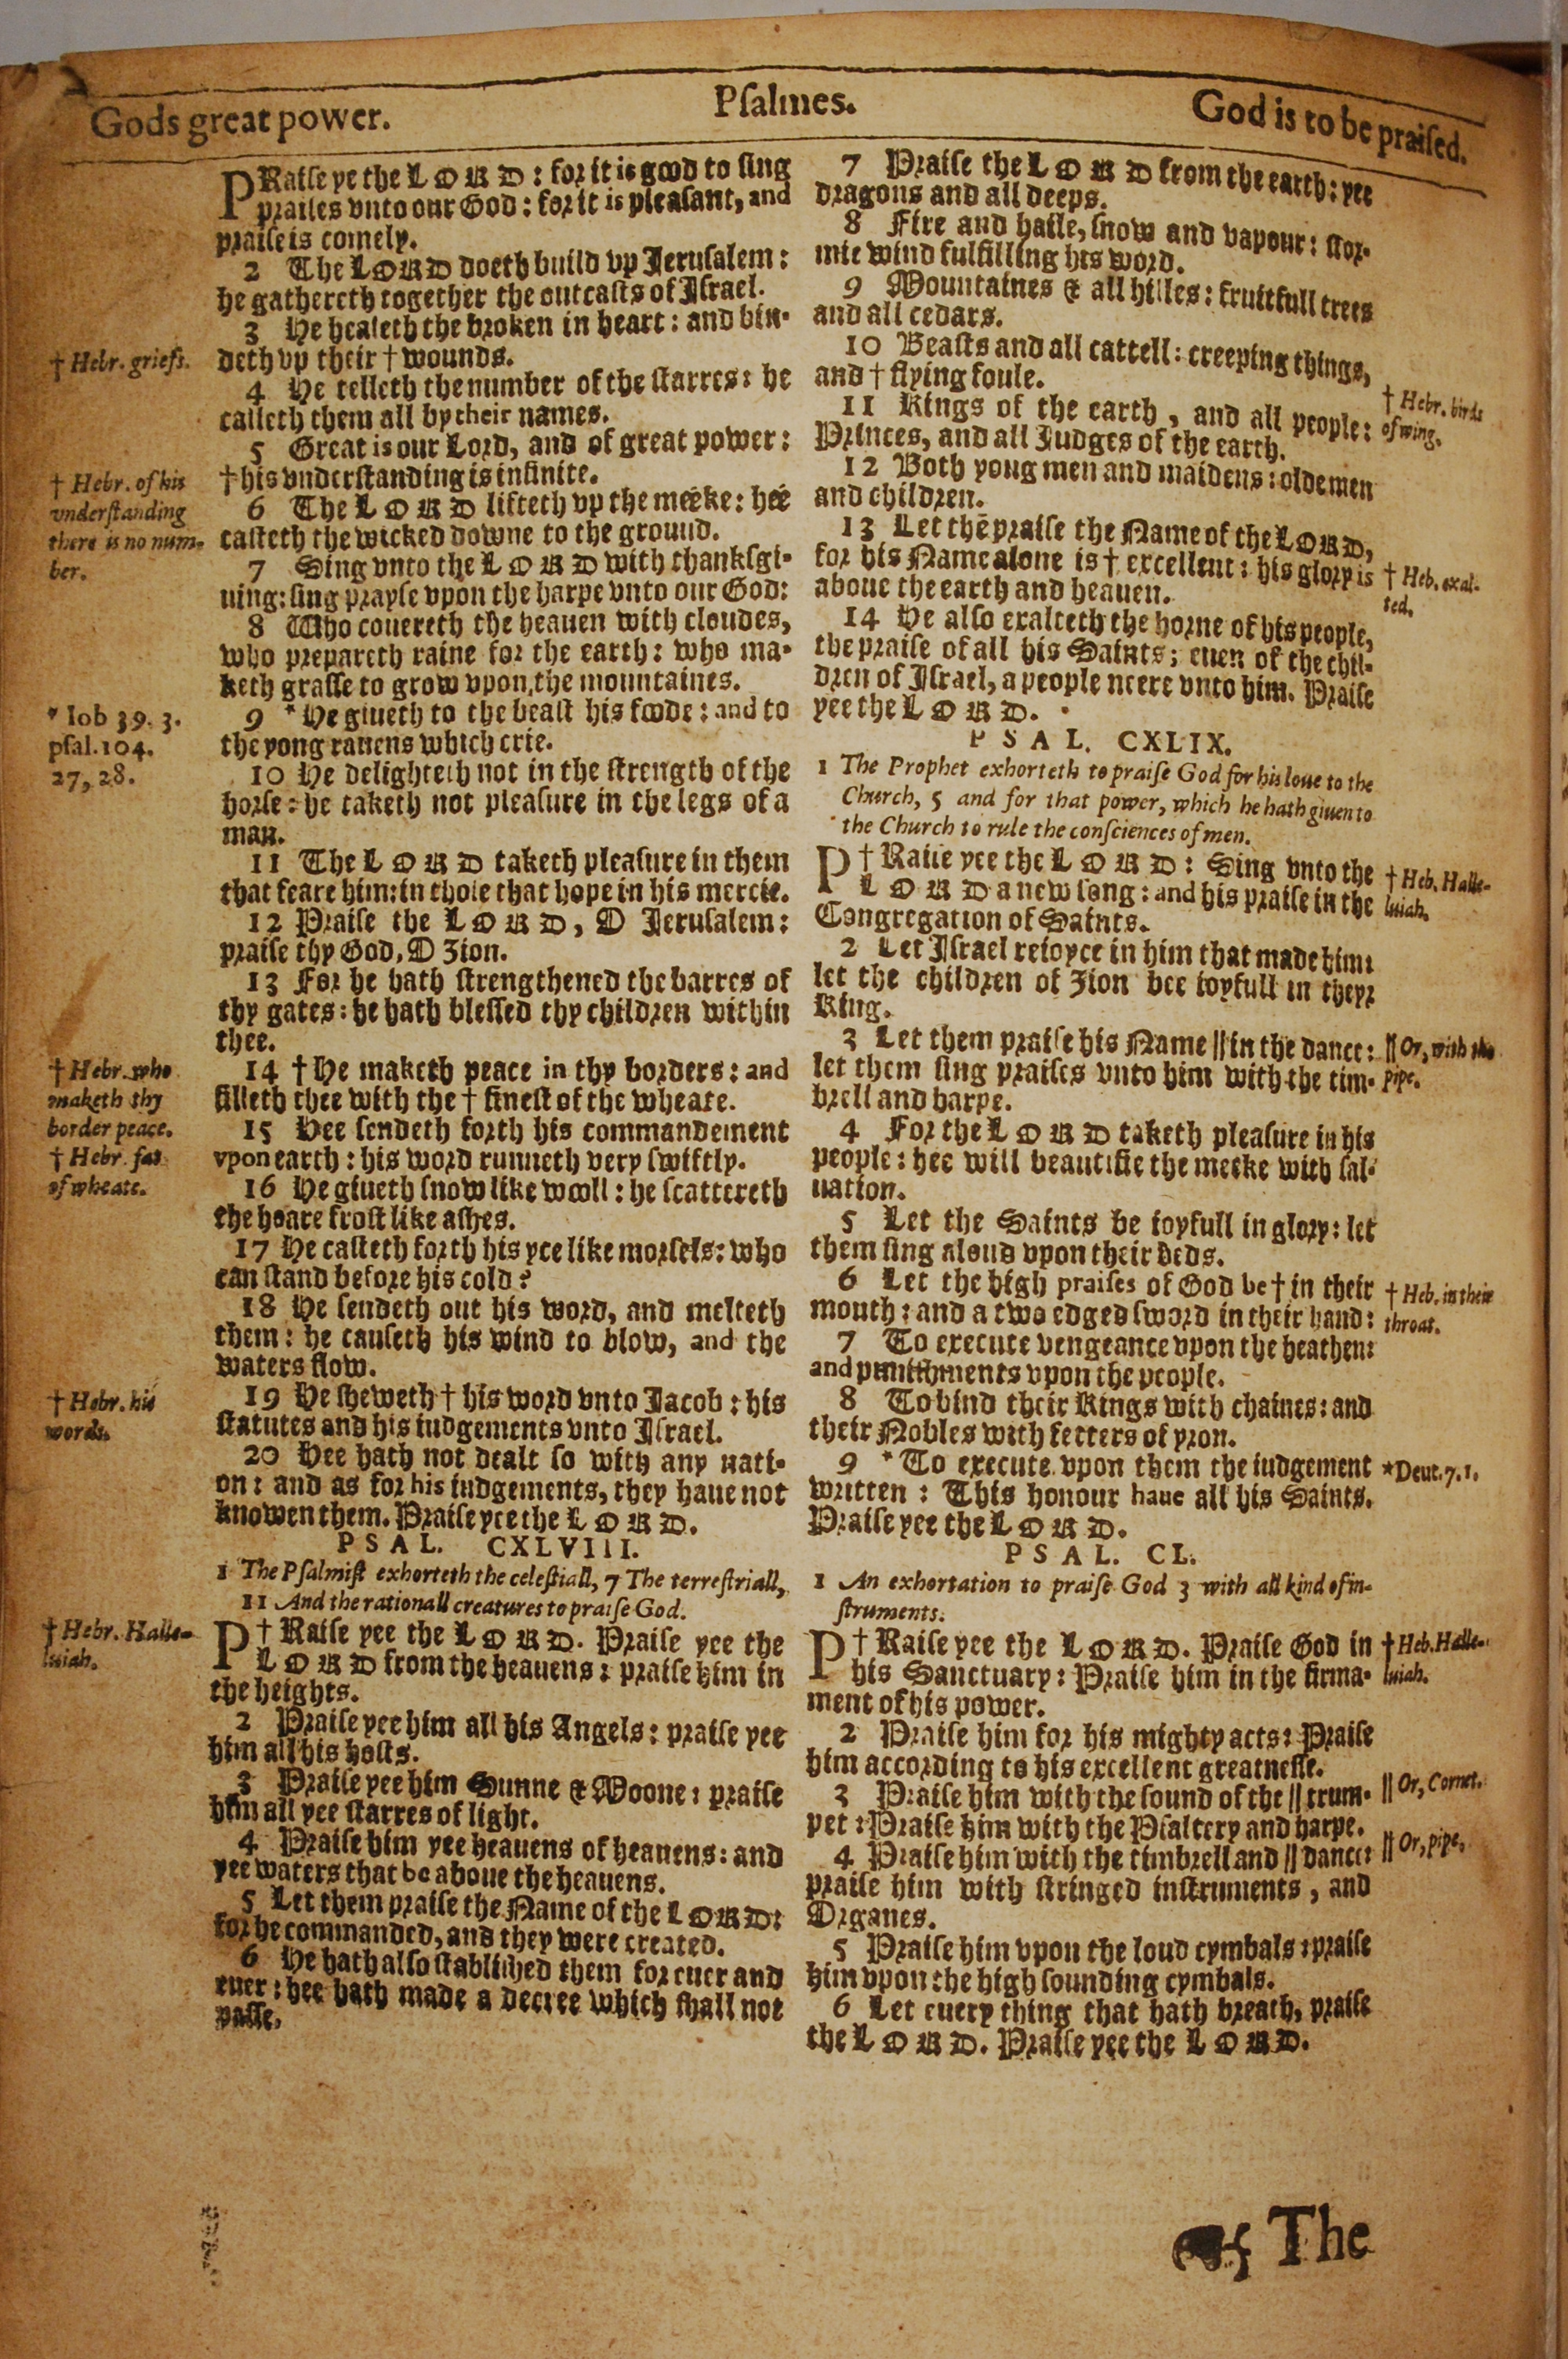 Gods great power.
Psalmes.
God is to be praised.
PRaise ye the LORD: for it is good to sing
praises vnto our God: for it is pleasant, and
praise is comely.
2 The LORD doeth build vp Jerusalem:
he gathereth together the outcasts of Israel.
3 He healeth the broken in heart: and bin-
deth vp their † wounds.
† Hebr. griefs.
4 He telleth the number of the starres: he
calleth them all by their names.
5 Great is our Lord, and of great power:
† his vnderstanding is infinite.
† Hebr. of his
vnderstanding
there is no num-
ber.
6 The LORD lifteth vp the meeke: hee
casteth the wicked downe to the ground.
7 Sing vnto the LORD with thanksgi-
uing: sing prayse vpon the harpe vnto our God:
8 Who couereth the heauen with cloudes,
who prepareth raine for the earth: who ma-
keth grasse to grow vpon the mountaines.
9 * He giueth to the beast his foode: and to
the yong rauens which crie.
* Iob 39. 3.
psal. 104.
27, 28.
10 He delighteth not in the strength of the
horse: he taketh not pleasure in the legs of a
man.
11 The LORD taketh pleasure in them
that feare him: in those that hope in his mercie.
12 Praise the LORD, O Jerusalem:
praise thy God, O Zion.
13 For he hath strengthened the barres of
thy gates: he hath blessed thy children within
thee.
14 † He maketh peace in thy borders: and
filleth thee with the † finest of the wheate.
† Hebr. who
maketh thy
border peace.
† Hebr. fat
of wheate.
15 Hee sendeth forth his commandement
vpon earth: his word runneth very swiftly.
16 He giueth snow like wooll: he scattereth
the hoare frost like ashes.
17 He casteth forth his yce like morsels: who
can stand before his cold?
18 He sendeth out his word, and melteth
them: he causeth his wind to blow, and the
waters flow.
19 He sheweth † his word vnto Jacob: his
statutes and his iudgements vnto Israel.
† Hebr. his
words.
20 Hee hath not dealt so with any nati-
on: and as for his iudgements, they haue not
knowen them. Praise yee the LORD.
PSAL. CXLVIII.
1 The Psalmist exhorteth the celestiall, 7 The terrestriall,
11 And the rationall creatures to praise God.
P† Raise yee the LORD. Praise yee the
LORD from the heauens: praise him in
the heights.
† Hebr. Halle-
luiah.
2 Praise yee him all his Angels: praise yee
him all his hosts.
3 Praise yee him Sunne & Moone: praise
him all yee starres of light.
4 Praise him yee heauens of heauens: and
yee waters that be aboue the heauens.
5 Let them praise the Name of the LORD:
for he commanded, and they were created.
6 He hath also stablished them for euer and
euer: hee hath made a decree which shall not
passe.
7 Praise the LORD from the earth: yee
dragons and all deeps.
8 Fire and haile, snow and vapour: stor-
mie wind fulfilling his word.
9 Mountaines & all hilles: fruitfull trees
and all cedars.
10 Beasts and all cattell: creeping things,
and † flying foule.
† Hebr. birds
of wing.
11 Kings of the earth, and all people:
Princes, and all Judges of the earth.
12 Both yong men and maidens: olde men
and children.
13 Let thē praise the Name of the LORD,
for his Name alone is † excellent: his glory is
aboue the earth and heauen.
† Heb. exal-
ted.
14 He also exalteth the horne of his people,
the praise of all his Saints; euen of the chil-
dren of Israel, a people neere vnto him. Praise
yee the LORD.
PSAL. CXLIX.
1 The Prophet exhorteth to praise God for his loue to the
Church, 5 and for that power, which he hath giuen to
the Church to rule the consciences of men.
P† Raise yee the LORD: Sing vnto the
LORD a new song: and his praise in the
Congregation of Saints.
† Heb. Halle-
luiah.
2 Let Israel reioyce in him that made him:
let the children of Zion bee ioyfull in theyr
King.
3 Let them praise his Name || in the dance:
let them sing praises vnto him with the tim-
brell and harpe.
|| Or, with the
pipe.
4 For the LORD taketh pleasure in his
people: hee will beautifie the meeke with sal-
uation.
5 Let the Saints be ioyfull in glory: let
them sing aloud vpon their beds.
6 Let the high praises of God be † in their
mouth: and a two edged sword in their hand:
† Heb. in their
throat.
7 To execute vengeance vpon the heathen:
and punishments vpon the people.
8 To bind their Kings with chaines: and
their Nobles with fetters of yron.
9 * To execute vpon them the iudgement
written: This honour haue all his Saints.
Praise yee the LORD.
* Deut. 7. 1.
PSAL. CL.
1 An exhortation to praise God 3 with all kind of in-
struments.
P† Raise yee the LORD. Praise God in
his Sanctuary: Praise him in the firma-
ment of his power.
† Heb. Halle-
luiah.
2 Praise him for his mighty acts: Praise
him according to his excellent greatnesse.
3 Praise him with the sound of the || trum-
pet: Praise him with the Psaltery and harpe.
|| Or, Cornet.
4 Praise him with the timbrell and || dance:
praise him with stringed instruments, and
Organes.
|| Or, pipe.
5 Praise him vpon the loud cymbals: praise
him vpon the high sounding cymbals.
6 Let euery thing that hath breath, praise
the LORD. Praise yee the LORD.
The